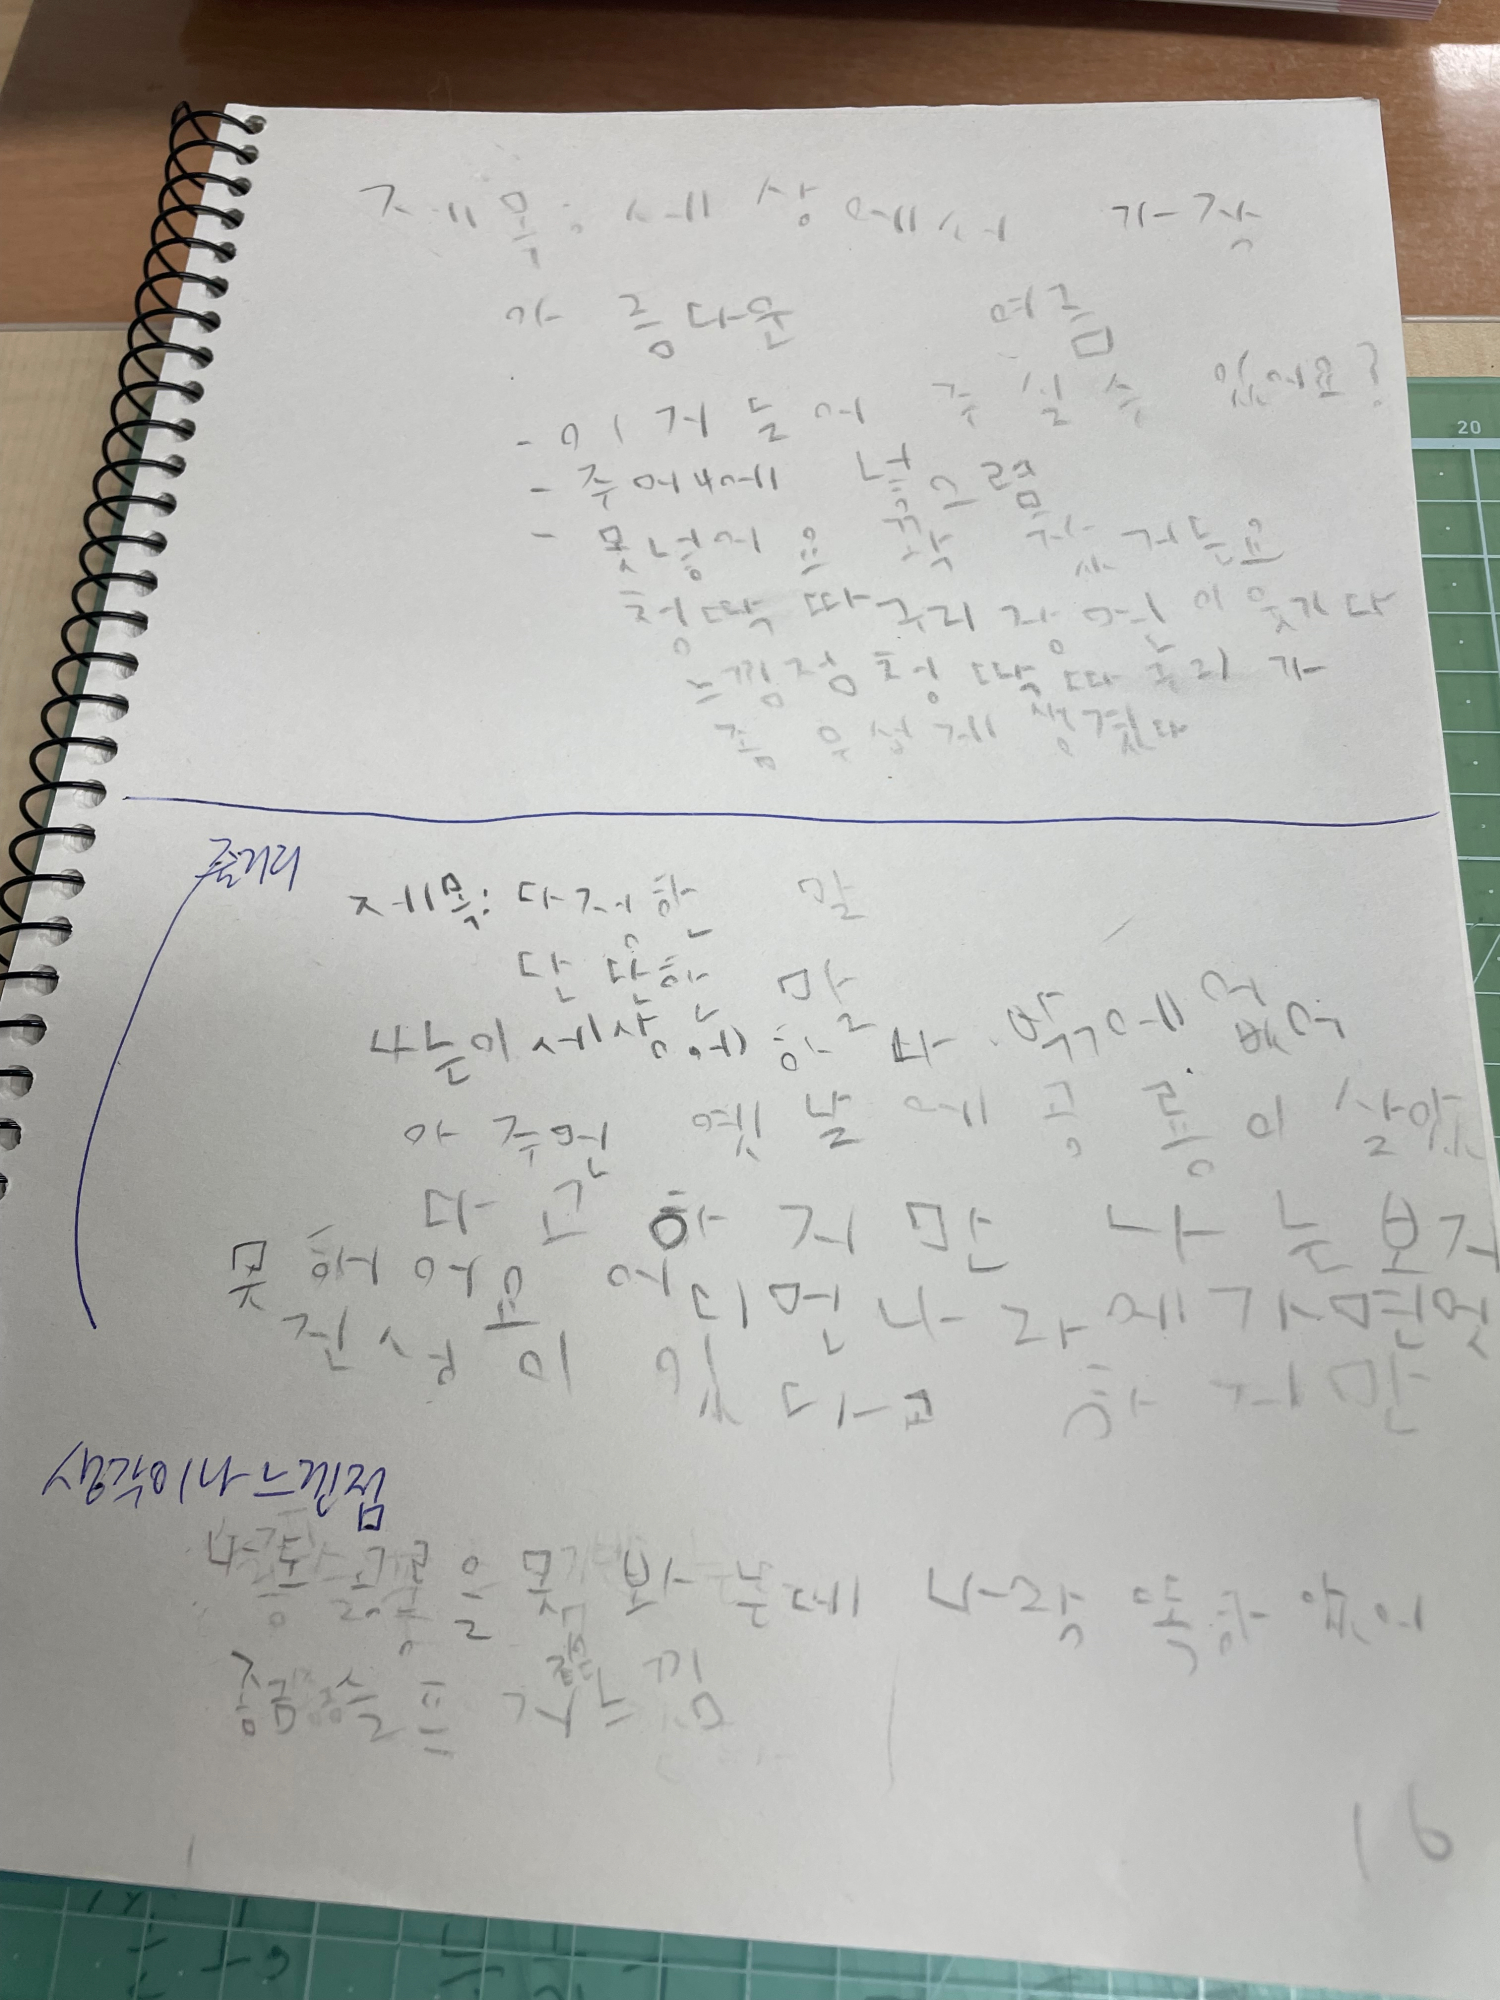 제목: 세상에서 가장
가름다운 여름
- 이거 들어 주실 수 있어요?
- 주머니에 넣으렴
- 못넣어요 꽉 찼거든요
청딱따구리 장면이 웃기다
느낌점 청딱따구리가
좀 우섭게 생겼다
줄거리
제목: 다정한 말
단단한 말
나는이 세상에 하나 밖에 없어
아주먼 옛날에 공룡이 살았
다고 하지만 나는 보지
못해어요 어디 먼나라에 가면 멋
진성이 있다고 하지만
생각이나 느낀점
공룡을 못 봐는데 나랑 똑같아
좀 슬프 느낌
16